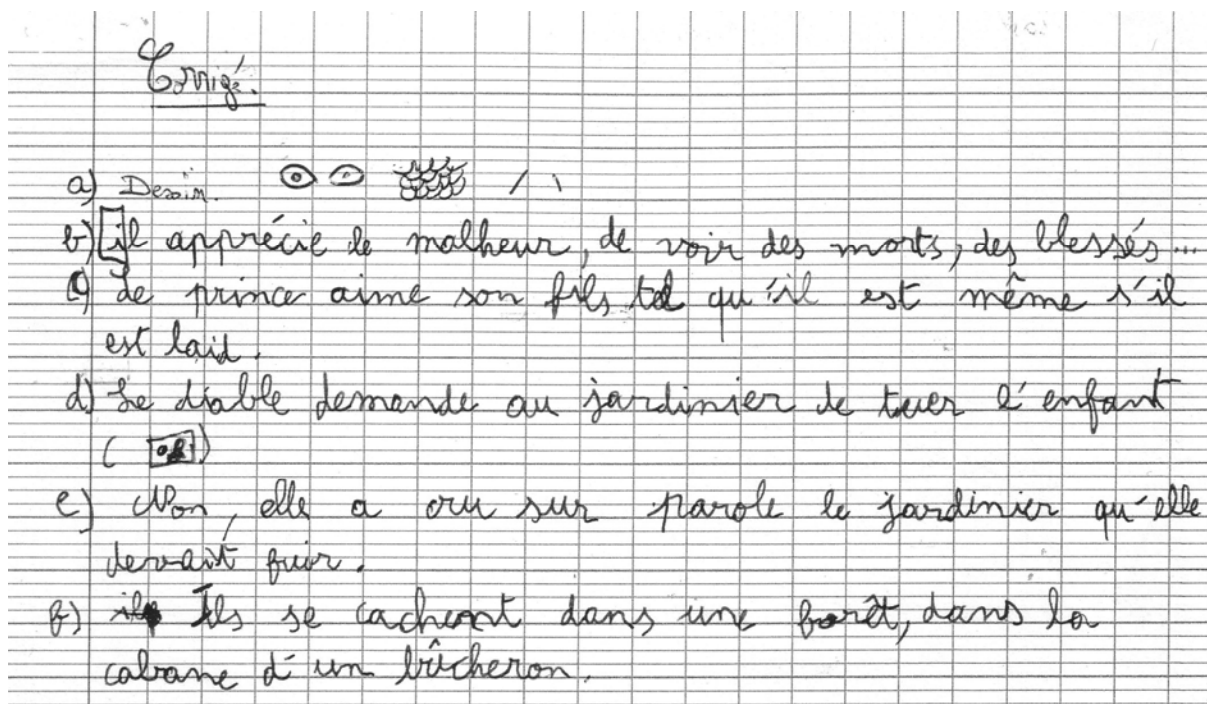 Corrigé.
a) Dessin.
b) il apprécie le malheur, de voir des morts, des blessés...
c) Le prince aime son fils tel qu'il est même s'il
est laid.
d) Le diable demande au jardinier de tuer l'enfant
( )
e) Non, elle a cru sur parole le jardinier qu'elle
devait fuir.
f) Ils se cachent dans une forêt, dans la
cabane d'un bûcheron.